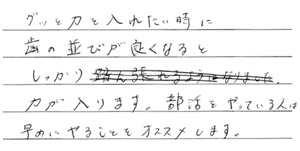 グッと力を入れたい時に
歯の並びが良くなると
しっかり踏ん張れるようになりました。
力が入ります。部活をやっている人は
早めにやることをオススメします。